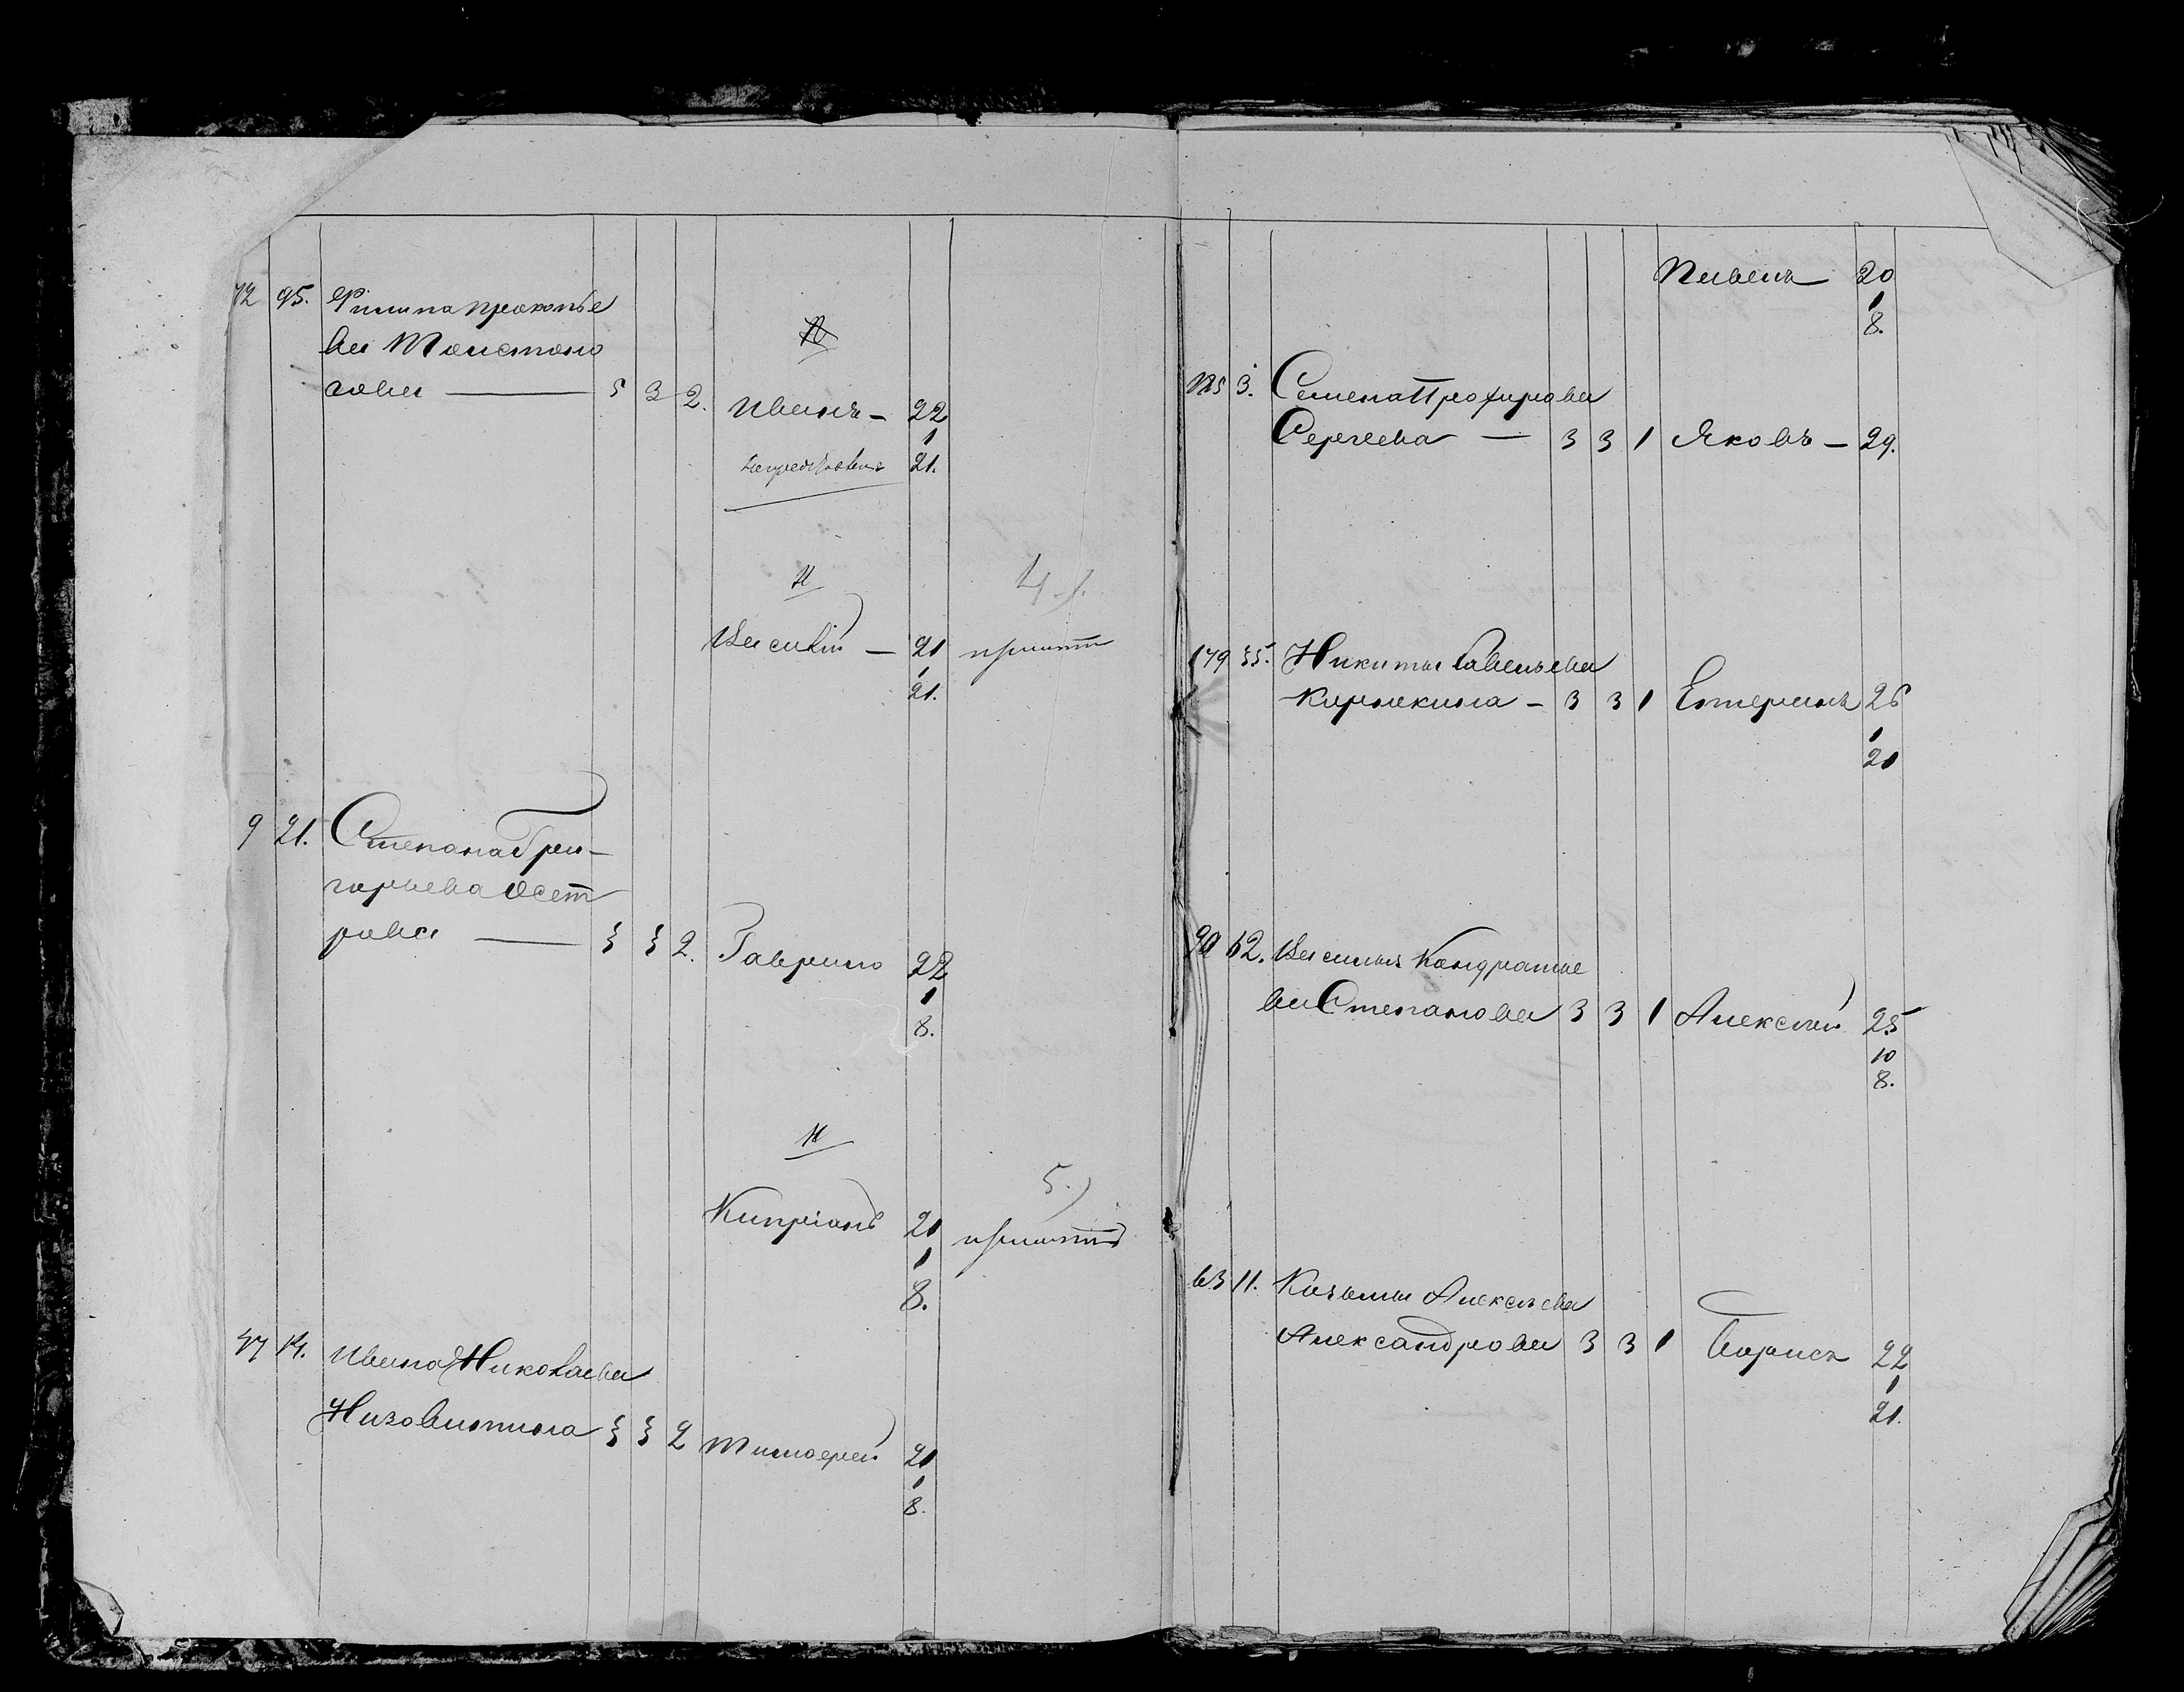 72 95. Филипа Прокопье
ва Толстоно
гова — 5 3 2.
Н
Иванъ — 22
1
21.
Н
4.)
Василій — 21 принятъ
1
21.
9 21. Степана Гри-
горьева Осет
рова — 3 3 2. Гаврило 22
1
8.
Н
5.)
Кипріанъ 21 принятъ
1
8.
47 14. Ивана Николаева
Низовитина 3 3 2 Тимофей 21
1
8.
Павелъ 20
1
8.
125 3. Семена Профирова
Сергеева — 3 3 1 Яковъ — 29.
179 35. Никиты Савельева
Карнекина — 3 3 1 26
1
20
90 62. Василья Кондратье
ва Степанова 3 3 1 Алексей 25
10
8.
63 11. Козьмы Алексѣева
Александрова 3 3 1 Борисъ 22
1
21.